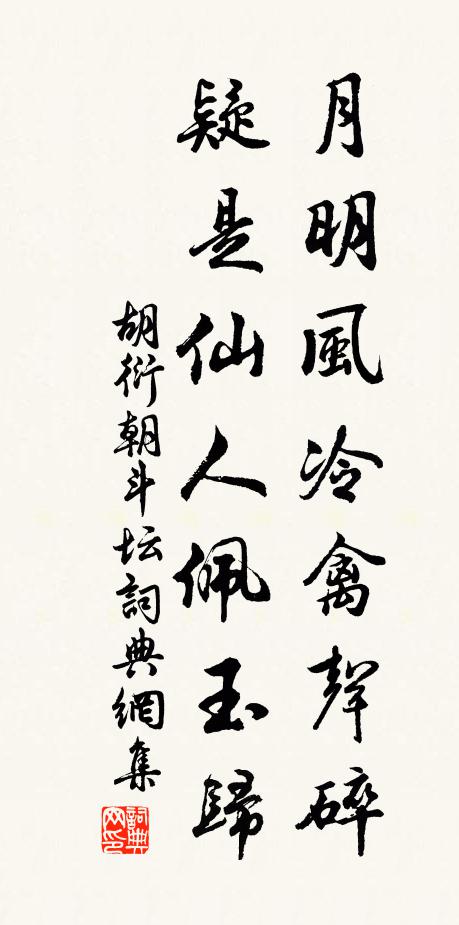 月明風冷禽聲碎
疑是仙人佩玉歸
胡衍朝斗坛詞典網集
詞典网印